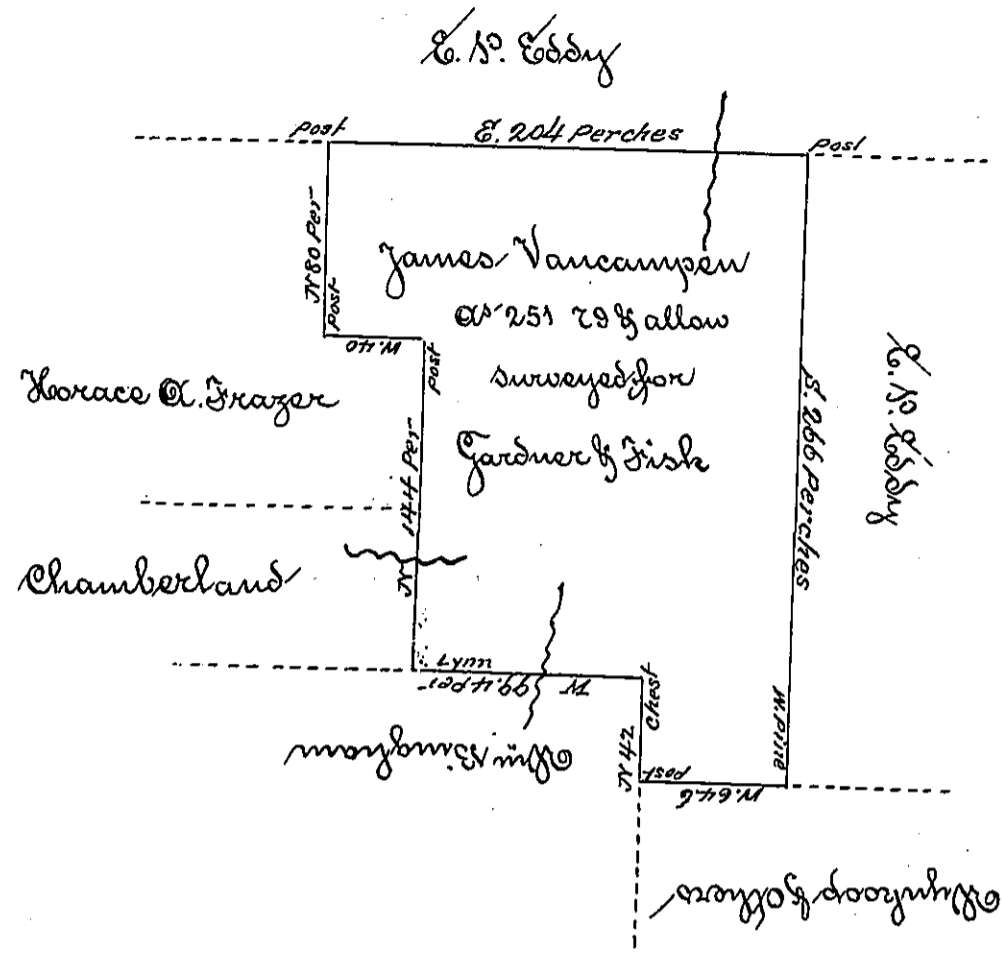 E. P. Eddy
Post
E. 204 Perches
Post
N 80 Per
Post
W. 40
Post
James Vancampen
as 251 79 & allow
surveyed for
Gardner & Fisk
Horace A. Frazer
N 144 Per
Chamberland
S. 266 Perches
E. P. Eddy
Lynn
W 99.4 Per
Chest
N 42
Post
W. 64.6
W. Pine
Wm Bingham
Wynkoop & Others